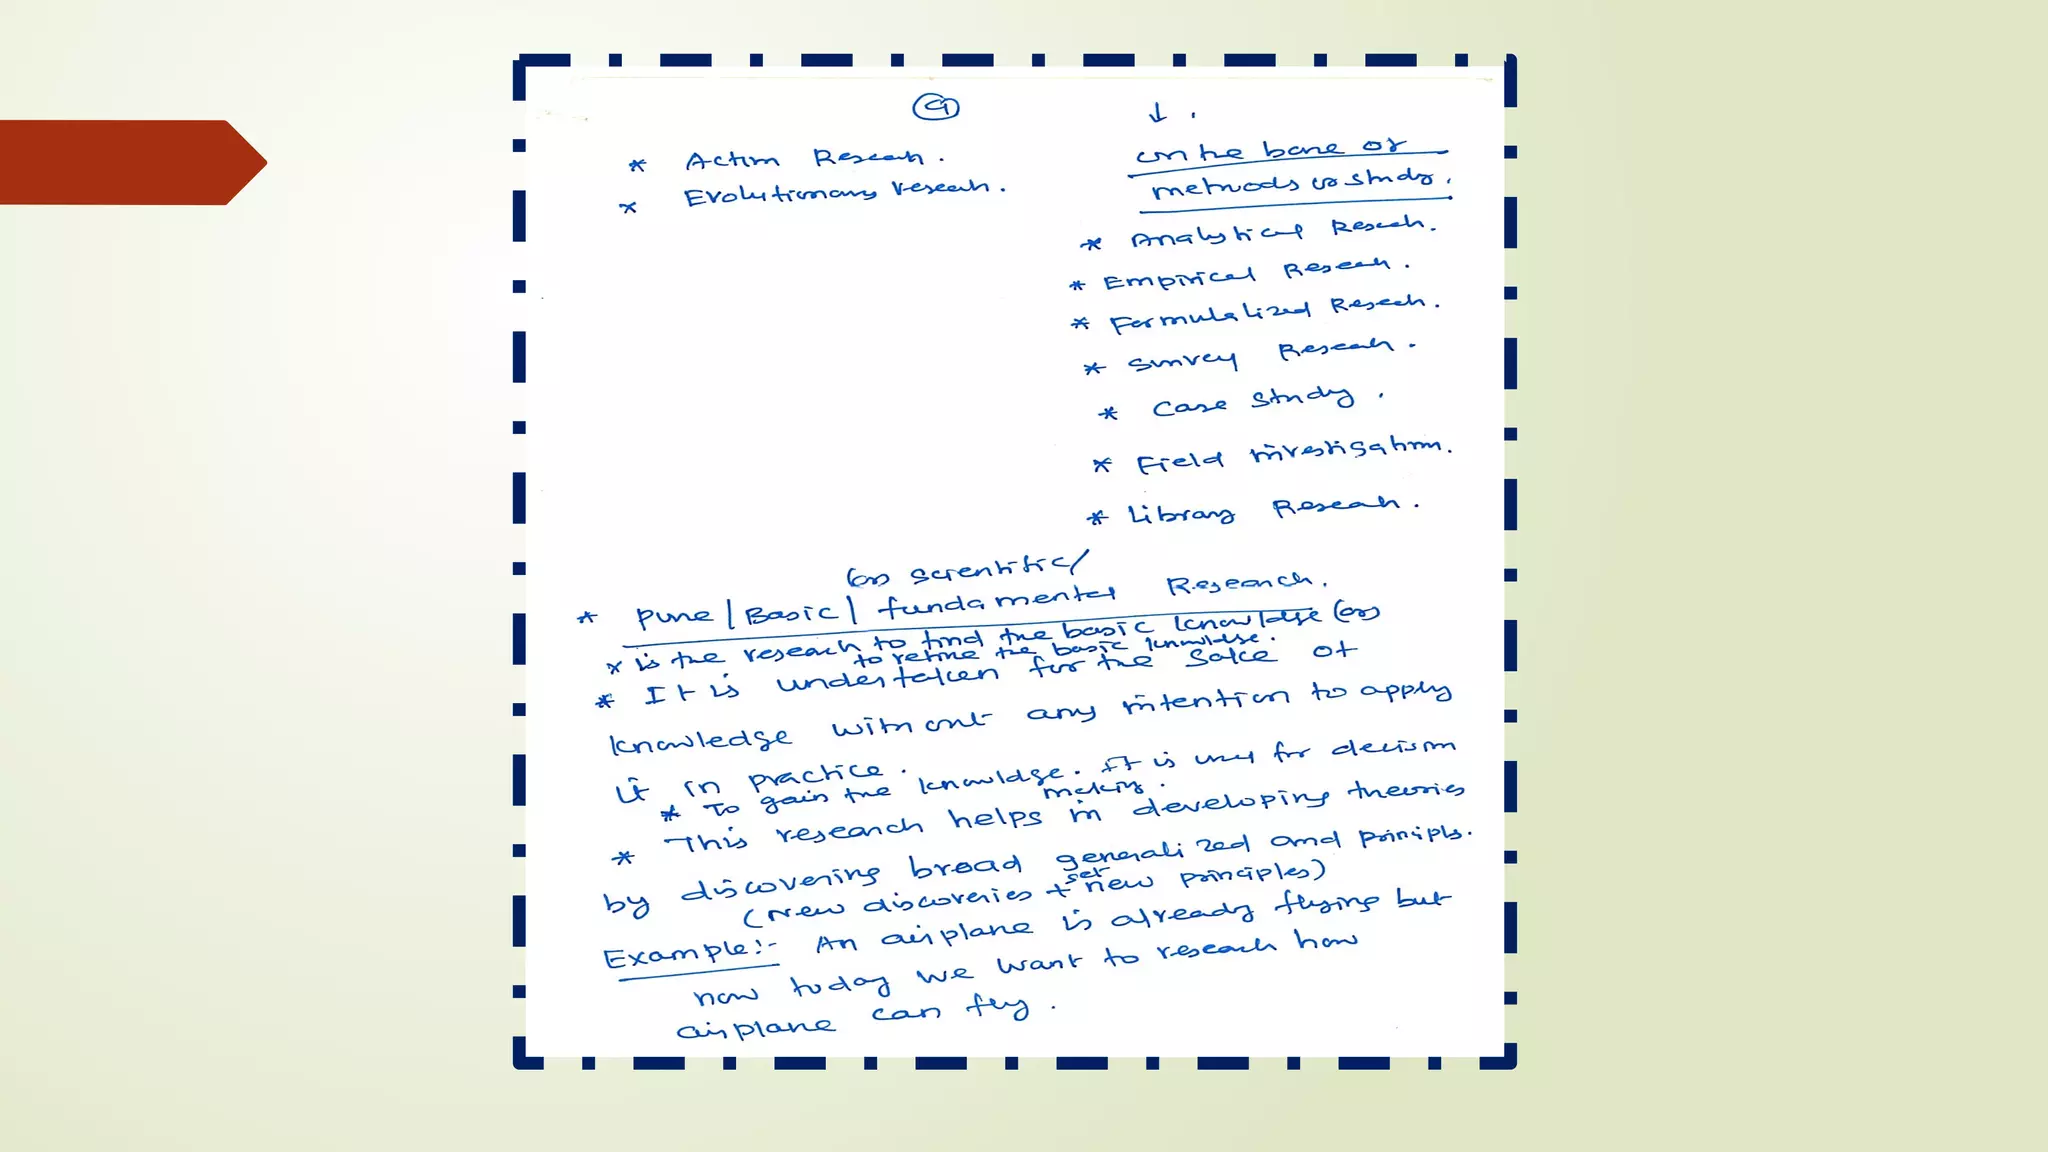 4
* Action Research.
* Evolutionary research.
↓ .
on the base of
methods or study.
* Analytical Research.
* Empirical Research.
* Formulalized Research.
* Survey Research.
* Case Study.
* Field investigation.
* Library Research.
(or) scientific/
* Pure/Basic/fundamental Research.
* is the research to find the basic knowledge (or)
to refine the basic knowledge.
* It is undertaken for the sake of
knowledge without any intention to apply
it in practice.
* To gain the knowledge. It is used for decision
making.
* This research helps in developing theories
by discovering broad generalized and principles.
(New discoveries + set new principles)
Example:- An airplane is already flying but
now today we want to research how
airplane can fly.